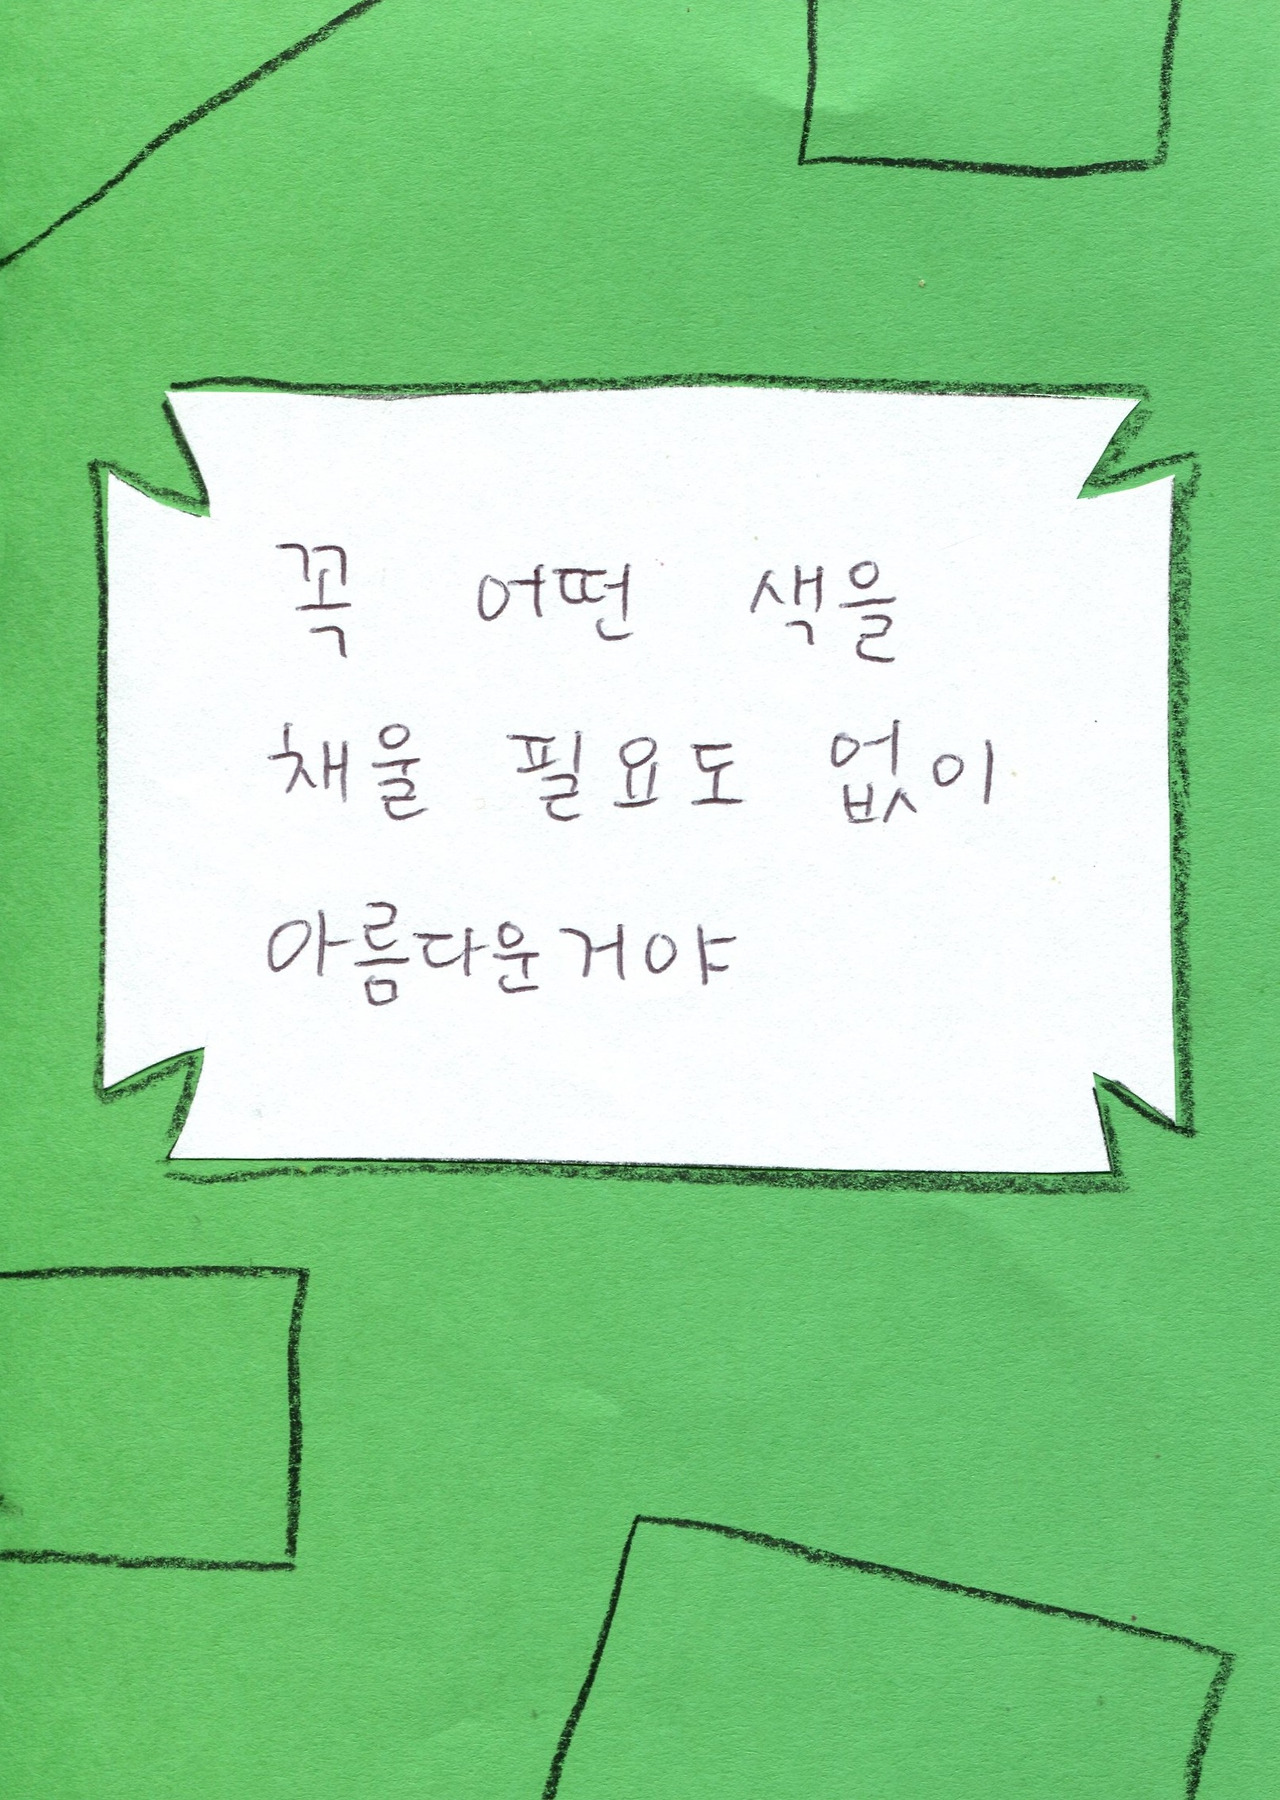 꼭 어떤 색을
채울 필요도 없이
아름다운거야